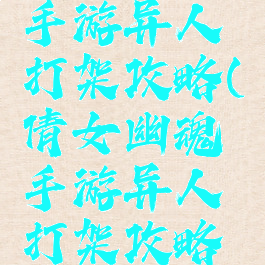 手游异人
打架攻略(
倩女幽魂
手游异人
打架攻略